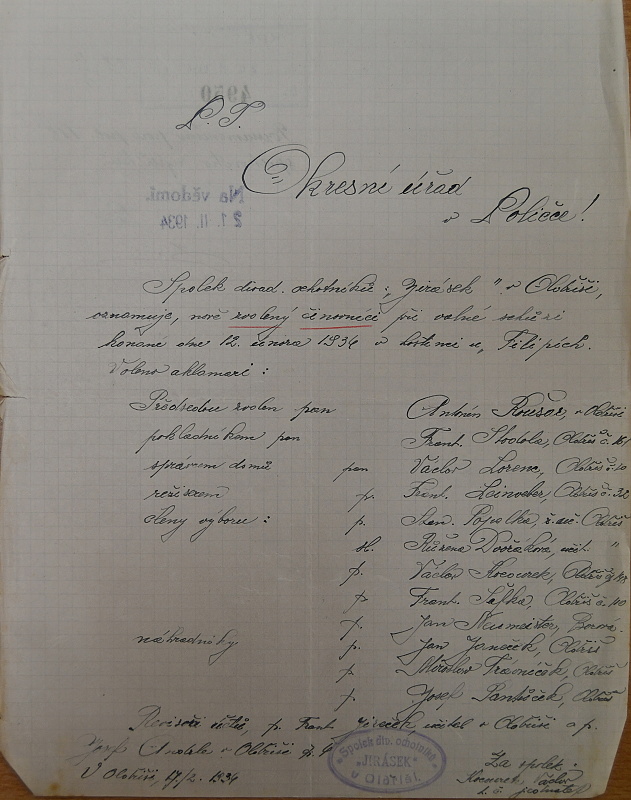 P. T.
Okresní úřad
v Poličce!
Na vědomí.
21. II. 1934
Spolek divad. ochotníků: „Jirásek" v Oldříši,
oznamuje, nově zvolený činovníci při valné schůzi
konané dne 12. února 1934 v hostinci u, Filipích.
Voleno aklamací:
Předsedou zvolen pan Antonín Roušar, v Oldříši
pokladníkem pan Frant. Stodola, Oldříš č. 161
správcem domů pan Václav Lorenc, Oldříš č. 10
režisérem p. Frant. Oldříš č. 32
členy výboru: p. Popelka, ř. uč. Oldříš
sl. Růžena Dvořáková, učit. "
p. Václav Kocourek, Oldříš
p. Frant. Šafka, Oldříš č. 40
p. Jan Neumeister, Borová.
náhradníky p. Jan Janeček, Oldříš
p. Miroslav Trávníček, Oldříš
p. Josef Pantůček, Oldříš
Revisoři účtů, p. Frant. učitel v Oldříši a p.
v Oldříši
V Oldříši, 17/2. 1934
Spolek div. ochotníků
„JIRÁSEK"
v Oldříši.
Za spolek:
Kocourek Václav
t. č. jednatel